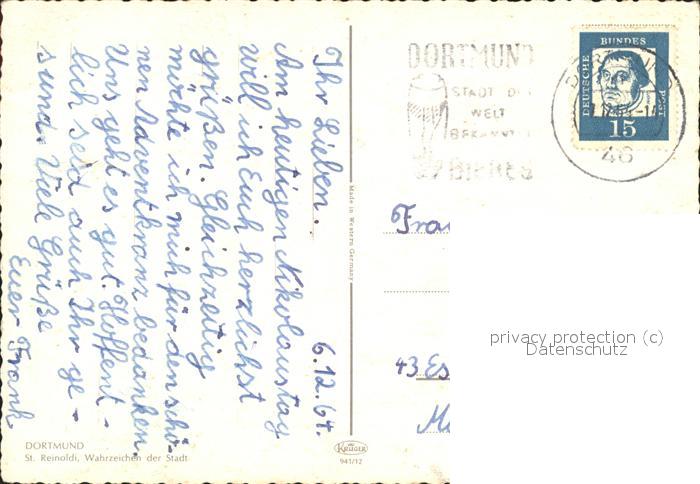 6.12.64.
Ihr Lieben.
Am heutigen Nikolaustag
will ich Euch herzlichst
grüßen. Gleichzeitig
möchte ich mich für den schö-
nen Adventkranz bedanken.
Uns geht es gut. Hoffent-
lich seid auch Ihr ge-
sund. Viele Grüße
Euer Frank
DORTMUND
St. Reinoldi, Wahrzeichen der Stadt
Made in Western Germany
KRÜGER
941/12
DORTMUND
STADT DES
WELT
BEKANNTEN
BIERES
DEUTSCHE BUNDES POST
15
46
Frau
43 Es
privacy protection (c)
Datenschutz